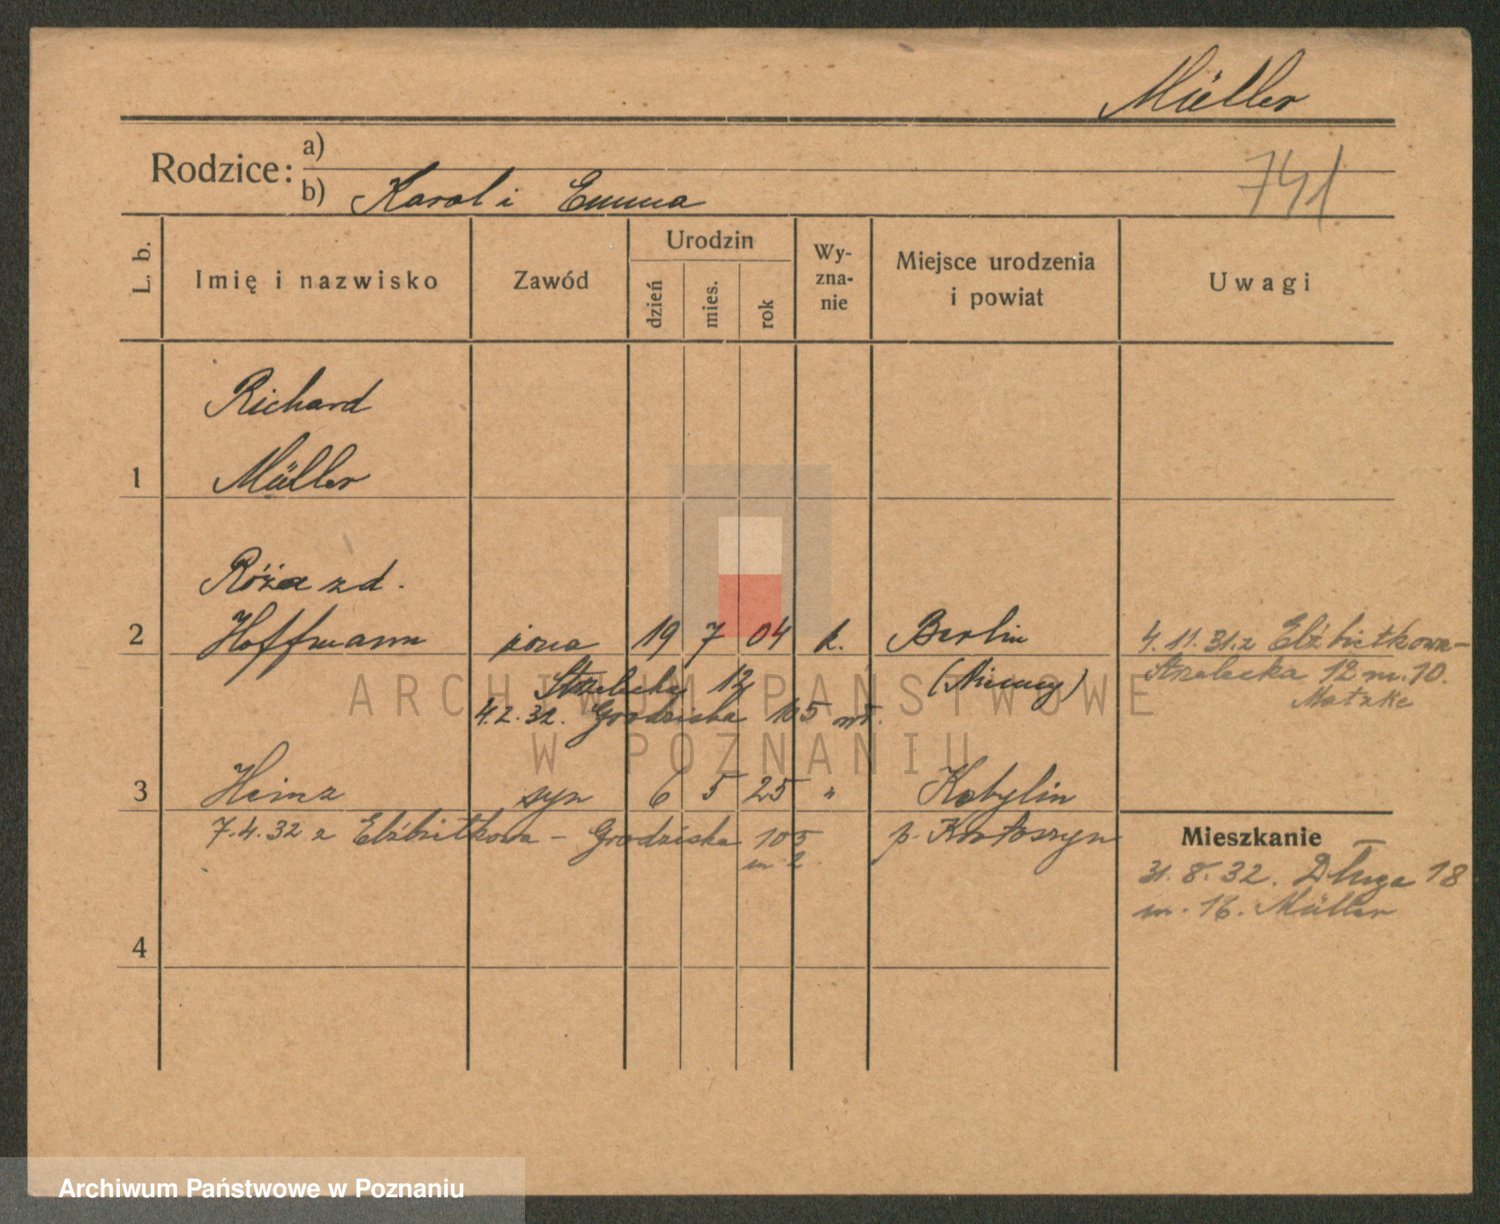 Müller
Rodzice: a)
b) Karol i Emma
741
L. b.
Imię i nazwisko
Zawód
Urodzin
dzień
mies.
rok
Wy-
zna-
nie
Miejsce urodzenia
i powiat
Uwagi
Richard
1 Müller
Róża z d.
2 Hoffmann żona 19 7 04 k. Berlin
(Niemcy)
4.11.31. z Elżbietkowa-
Strzelecka 12 m. 10.
Matzke
Strzelecka 12
4.2.32. Grodziska 105
3 Heinz syn 6 5 25 " Kobylin
p. Krotoszyn
7.4.32 z Elżbietkowa - Grodziska 105
m 2
Mieszkanie
31.8.32. Długa 18
m. 16. Müller
4
ARCHIWUM PAŃSTWOWE
W POZNANIU
Archiwum Państwowe w Poznaniu